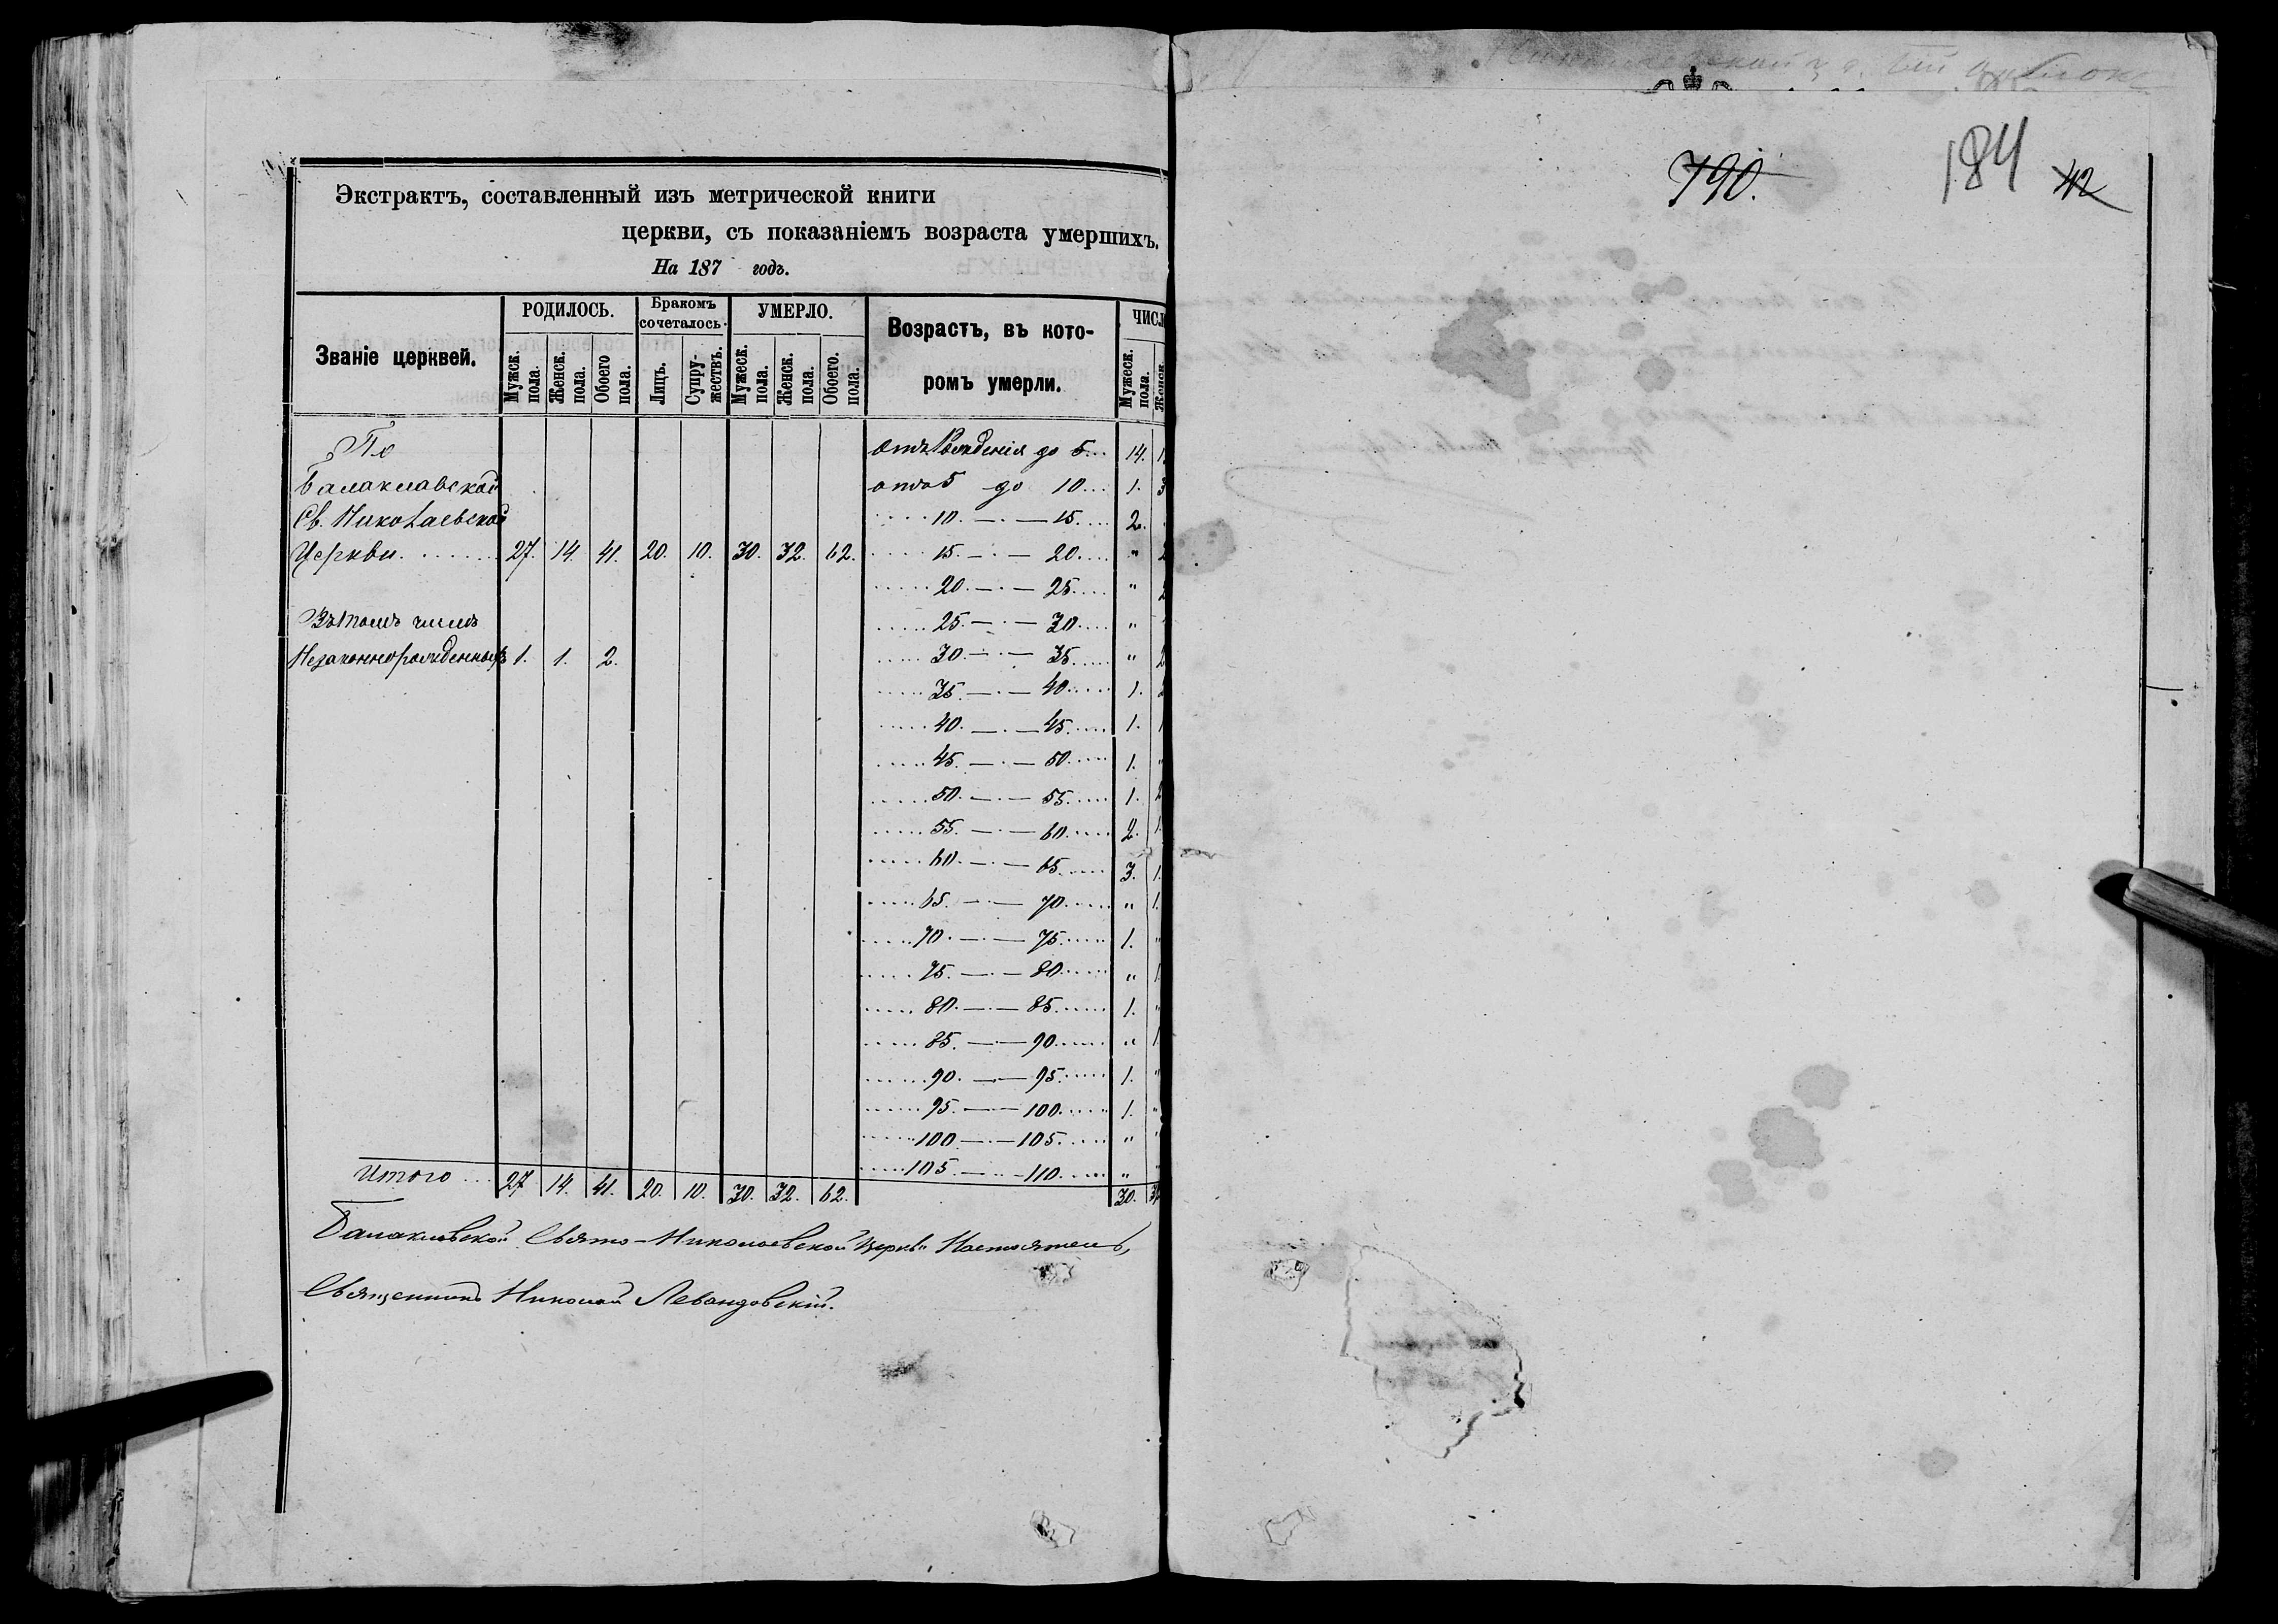 Экстрактъ, составленный изъ метрической книги
церкви, съ показаніемъ возраста умершихъ.
На 187 годъ.
Званіе церквей. РОДИЛОСЬ. Бракомъ сочеталось. УМЕРЛО. Возрастъ, въ кото-ромъ умерли. ЧИСЛ
Мужск. пола. Женск. пола. Обоего пола. Лицъ. Супру-жествъ. Мужеск. пола. Женск. пола. Обоего. пола. Мужеск. пола. Женск.
По отъ Рожденія до 5... 14.
Балаклавской отъ 5 до 10... 1. 3
Св. Николаевской 10. — 15. 2.
Церкви. 27. 14. 41. 20. 10. 30. 32. 62. 15. — 20. "
20. — 25. "
Въ томъ числѣ 25. — 30. "
Незаконнорожденныхъ 1. 1. 2. 30. — 35. " 2
35. — 40. 1.
40. — 45. 1. 1
45. — 50. 1. "
50. — 55. 1. 2
55. — 60. 2. 1.
60. — 65. 3. 1.
65. — 70. " 1.
70. — 75. 1. "
75. — 80. " 1
80. — 85. 1. "
85. — 90. " 1
90. — 95. 1. "
95. — 100. 1. "
100 — 105. " "
105. — 110. " "
Итого ... 27 14. 41. 20. 10. 30. 32. 62. 30. 32
Балаклавской Свято-Николаевской Церкви Настоятель,
Священникъ Николай Левандовскій.
790.
184
42